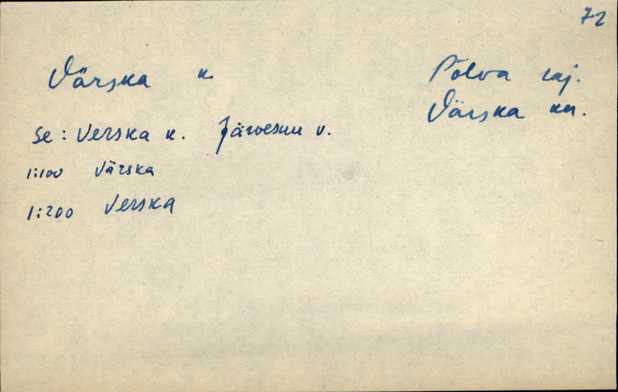 72
Värska k. Põlva raj.
Värska kn.
Se: Verska k. Järvesuu v.
1:100 Värska
1:200 Verska